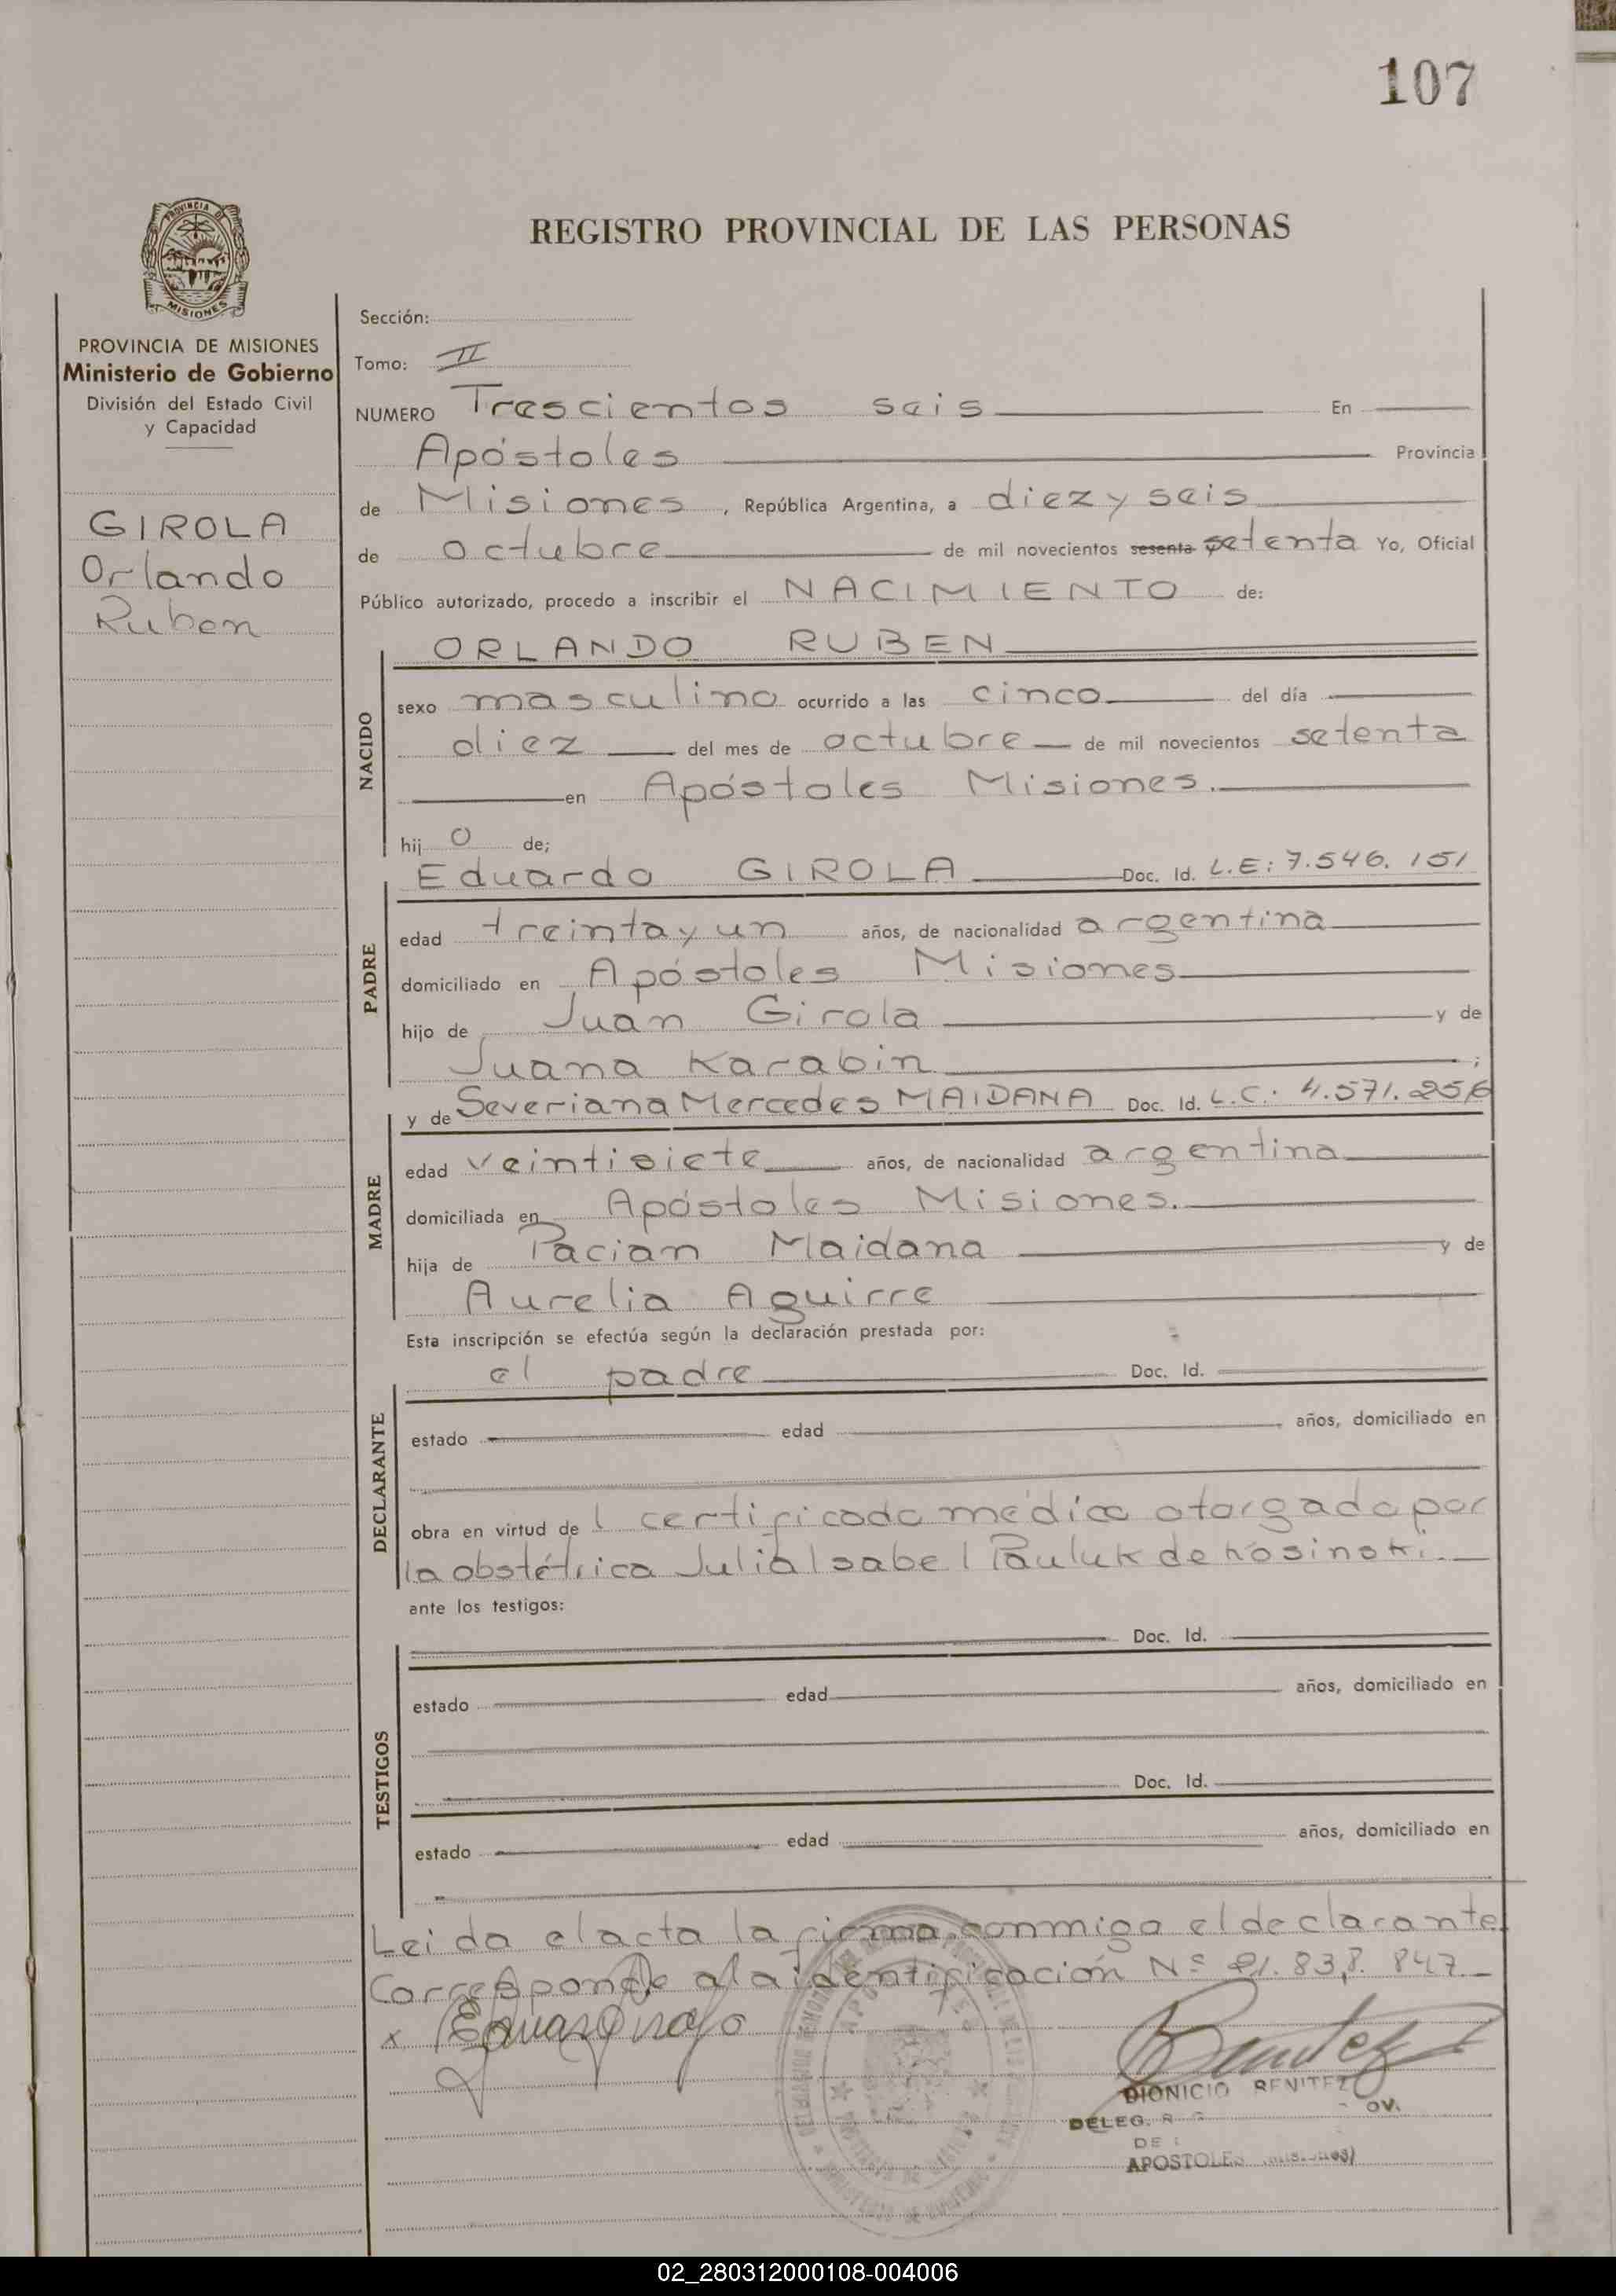 107
REGISTRO PROVINCIAL DE LAS PERSONAS
PROVINCIA DE
MISIONES
PROVINCIA DE MISIONES
Ministerio de Gobierno
División del Estado Civil
y Capacidad
GIROLA
Orlando
Ruben
Sección:
Tomo: II
NUMERO Trescientos seis En
Apóstoles Provincia
de Misiones, República Argentina, a diez y seis
de octubre de mil novecientos sesenta setenta Yo, Oficial
Público autorizado, procedo a inscribir el NACIMIENTO de:
ORLANDO RUBEN
NACIDO
sexo masculino ocurrido a las cinco del día
diez del mes de octubre de mil novecientos setenta
en Apóstoles Misiones.
hij o de;
Eduardo GIROLA Doc. Id. L.E: 7.546.151
PADRE
edad treinta y un años, de nacionalidad argentina
domiciliado en Apóstoles Misiones
hijo de Juan Girola y de
Juana Karabin ;
y de Severiana Mercedes MAIDANA Doc. Id. L.C.: 4.571.256
MADRE
edad veintisiete años, de nacionalidad argentina
domiciliada en Apóstoles Misiones.
hija de Pacian Maidana y de
Aurelia Aguirre
Esta inscripción se efectúa según la declaración prestada por:
el padre Doc. Id.
DECLARANTE
estado edad años, domiciliado en
obra en virtud de l certificado médico otorgado por
la obstétrica Julia Isabel Pauluk de Kosinski.
ante los testigos:
Doc. Id.
TESTIGOS
estado edad años, domiciliado en
Doc. Id.
estado edad años, domiciliado en
Leida el acta la firma conmigo el declarante.
Corresponde a la identificación Nº 21.838.847
x
Benitez
DIONICIO BENITEZ
DELEG.
DE
APOSTOLES
02_280312000108-004006